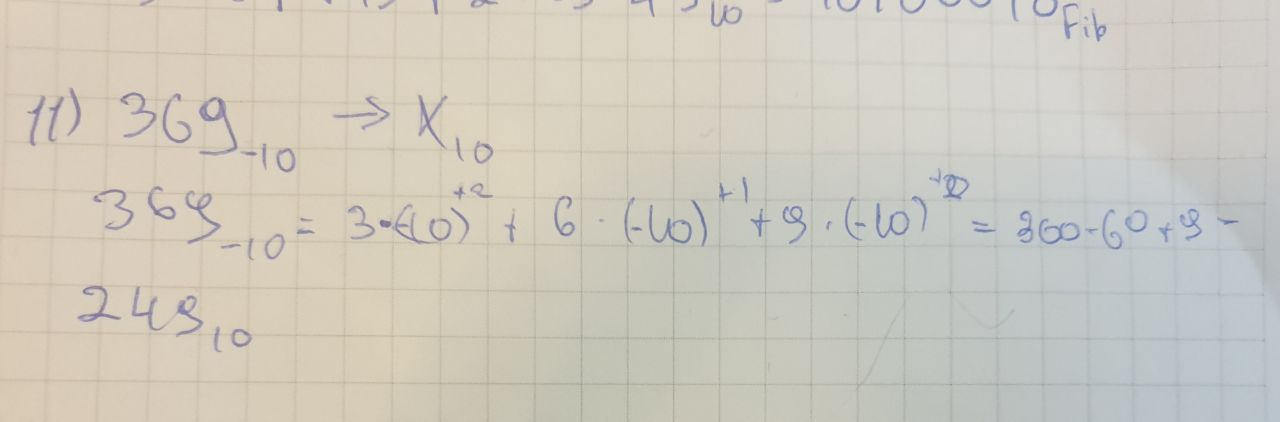 10 = 10100010Fib
11) 369₋₁₀ → X₁₀
369₋₁₀ = 3·(-10)⁺² + 6 · (-10)⁺¹ + 9 · (-10)⁺⁰ = 300-60+9 =
249₁₀